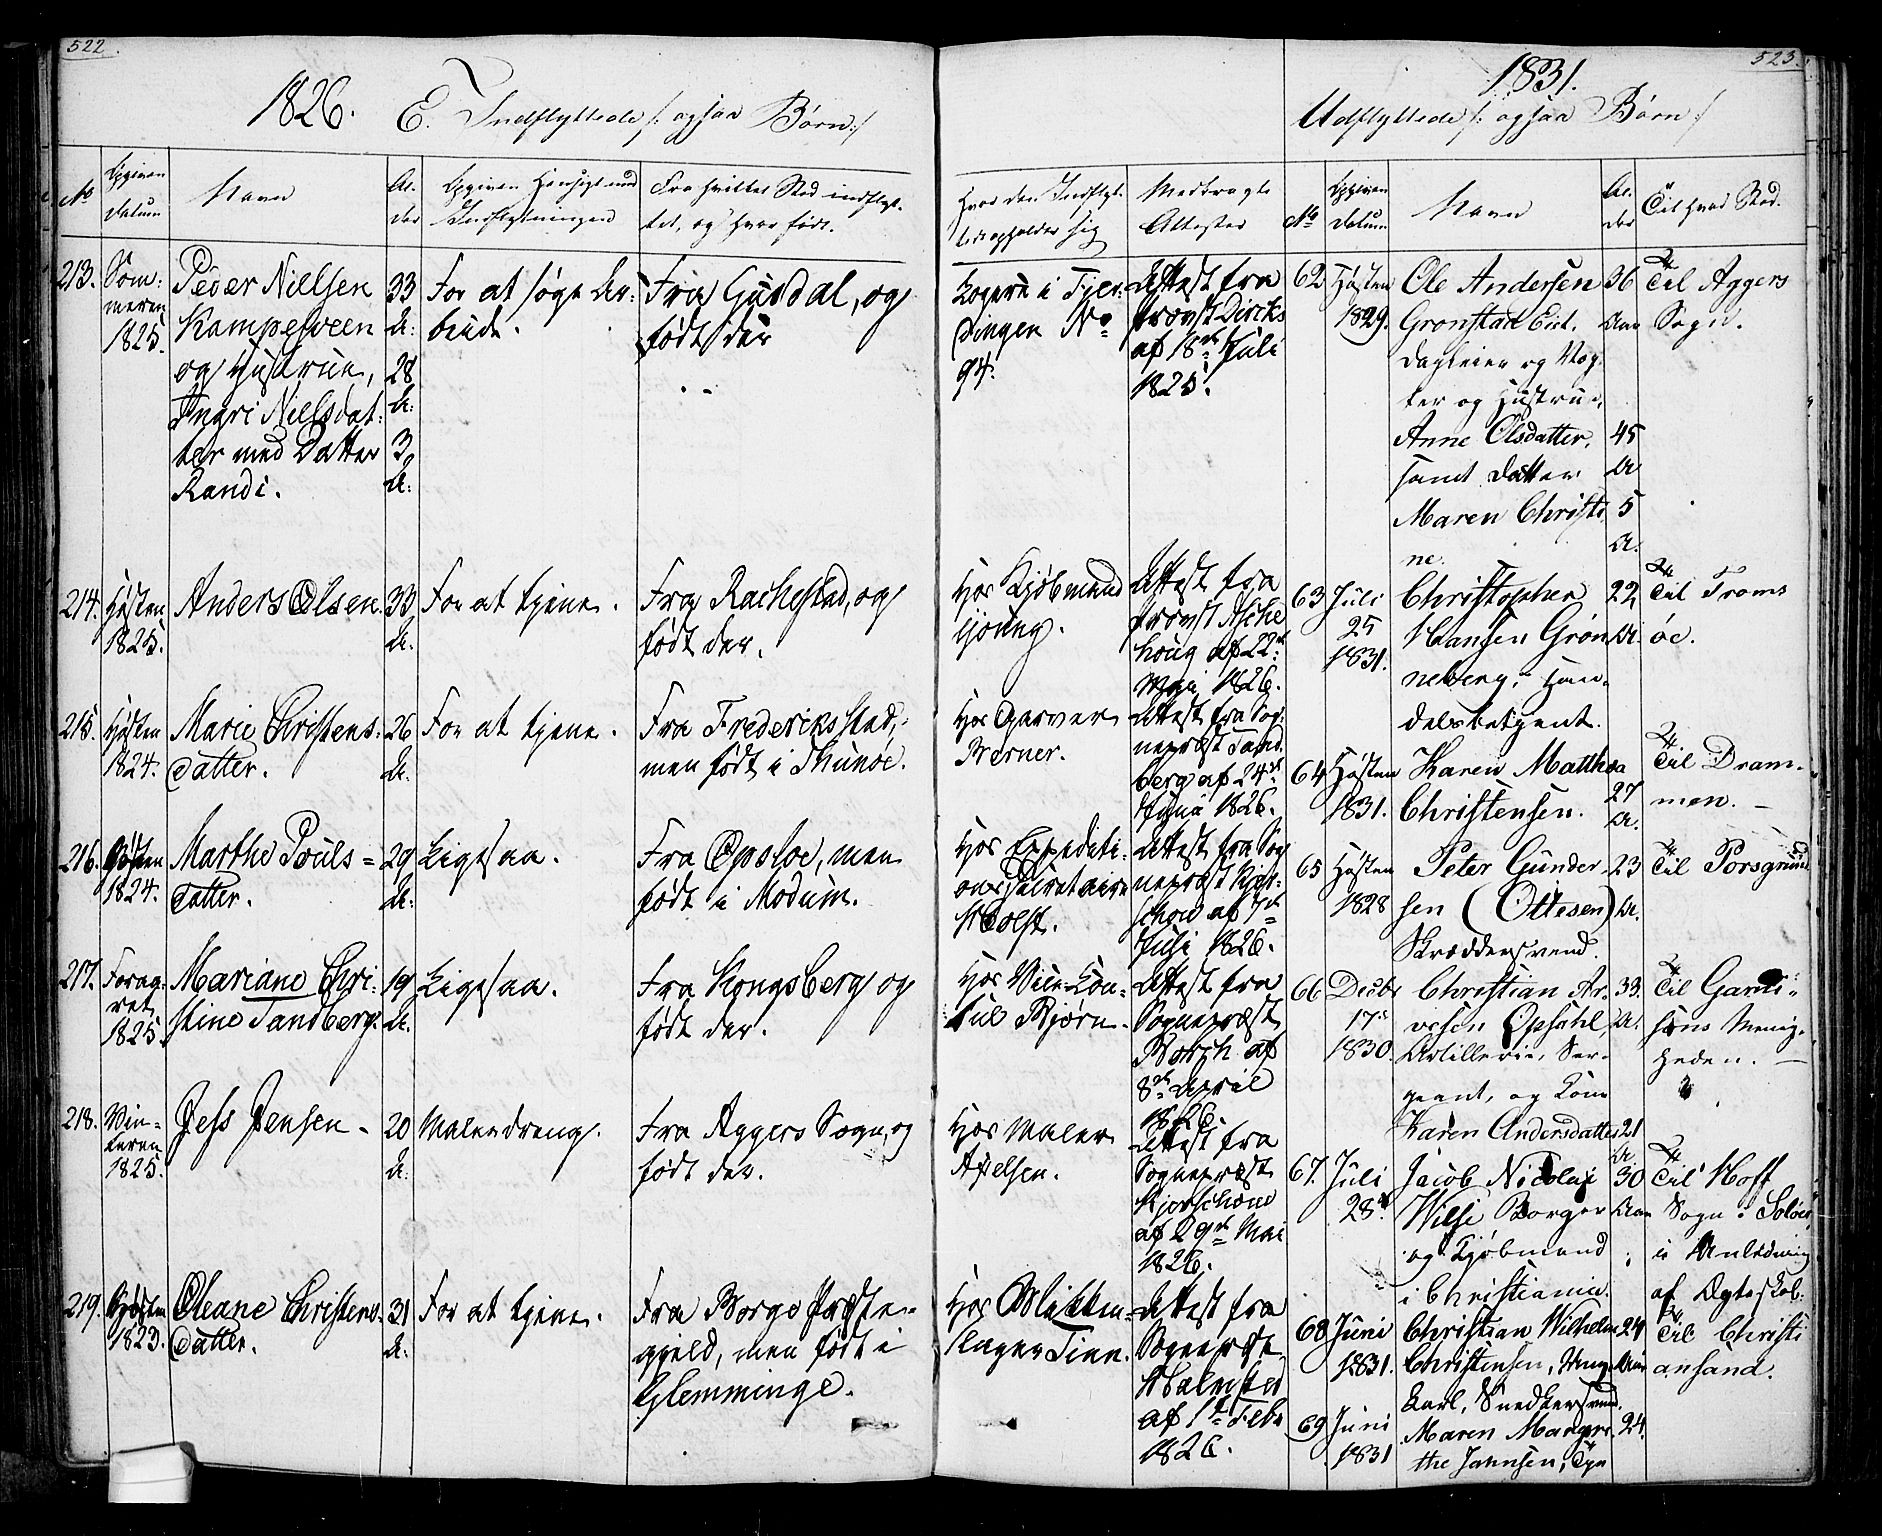 522.
1826. E. Indflyttede /: ogsaa Børn :/
No
Opgiven Datum
Navn
Alder
Opgiven Hensigt med Indflytningen
Fra hvilket Sted indflyttet, og hvor født.
Hvor den Indflyttede opholder sig
Medbragte Attester
213. Sommeren 1825.
Peder Nielsen
Kampesveen
og Hustrue,
Ingri Nielsdat:
ter med Datter
Randi.
33 A:
28 A:
3 A:
For at søge Ar:
beide.
Fra Gusdal, og
født der
Logere i Fjer:
dingen No
94.
Attest fra
Provst Dircks
af 18de Juli
1825.
214. Høsten 1825.
Anders Olsen.
33 A:
For at tjene.
Fra Rachestad, og
født der.
Hos Kjøbmand
Young.
Attest fra
Provst Asche
houg af 22de
Maj 1826.
215. Høsten 1824.
Marie Christens:
Datter.
26 A:
For at tjene.
Fra Frederiksstad,
men født i Thunøe.
Hos Garver
Berner.
Attest fra Sog:
nepræst Tand
berg af 24de
Juni 1826.
216. Høsten 1824.
Marthe Pouls=
Datter.
29 A:
Ligesaa.
Fra Opsloe, men
født i Modum.
Hos Expediti:
ons Secretaire
Holst.
Attest fra Sog
nepræst
af 7de
Juli 1826.
217. Foraa-
ret
1825.
Mariane Chri:
stine Tandberg.
19 A:
Ligesaa.
Fra Kongsberg og
født der.
Hos Vice-Con-
sul Bjørn.
Attest fra
Sognepræst
Borch af
8de April
1826.
218. Vin-
teren
1825.
Jess Jensen
20 A:
Malerdreng.
Fra Aggers Sogn, og
født der.
Hos Maler
Axelsen.
Attest fra
Sognepræst
Kjerschow
af 29de Mai
1826.
219. Høsten
1823.
Oleane Christens.
Datter.
31 A:
For at tjene.
Fra Borge Præste-
gjeld, men født i
Glemminge.
Hos Blikken-
slager Linn.
Attest fra
Sognepræst
af 1ste Febr
1826.
523.
1831.
Udflyttede /: ogsaa Børn :/
No
Opgiven Datum
Navn
Alder
Til hvad Sted.
62 Høsten
1829.
Ole Andersen
Gronstad Eiet.
Dagleier og Vog-
ter og Hustrue,
Anne Olsdatter,
samt Datter
Maren Christi
ne.
36 Aar
45 Ar
5 Ar.
Til Aggers
Sogn.
63 Juli
25
1831.
Christopher
Hansen Grøn
neberg, Han-
delsbetjent.
22 Ar.
Til Troms
øe.
64 Høsten
1831.
Karen Mathea
Christensen.
27 Ar.
Til Dram-
men.
65 Høsten
1828
Peter Gunder-
sen (Ottesen)
Skræddersvend.
23 Ar.
Til Porsgrund
66 Decbr
17de
1830.
Christian Ar-
vesen Opsahl,
Artillerie, Ser-
geant, og Kone
Karen Andersdatter
33. Ar.
21 Ar
Til Garni-
sons Menig-
heden.
67. Juli
28de
Jacob Nicolai
Wilse Borger
og Kjøbmand
i Christiania.
30 Aar
Til Hoff
Sogn i Soløer
i Anledning
af Ægteskab.
68 Juni
1831.
Christian Wilhelm
Christensen, Ung
Karl, Snedkersvend.
24 Aar
Til Christi
ansand.
69 Juni
1831
Maren Margre
the Jahnsen,
24.